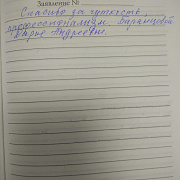 Заявление №
Спасибо за чуткость,
профессионализм Баранцевой
Дарье Андреевне.